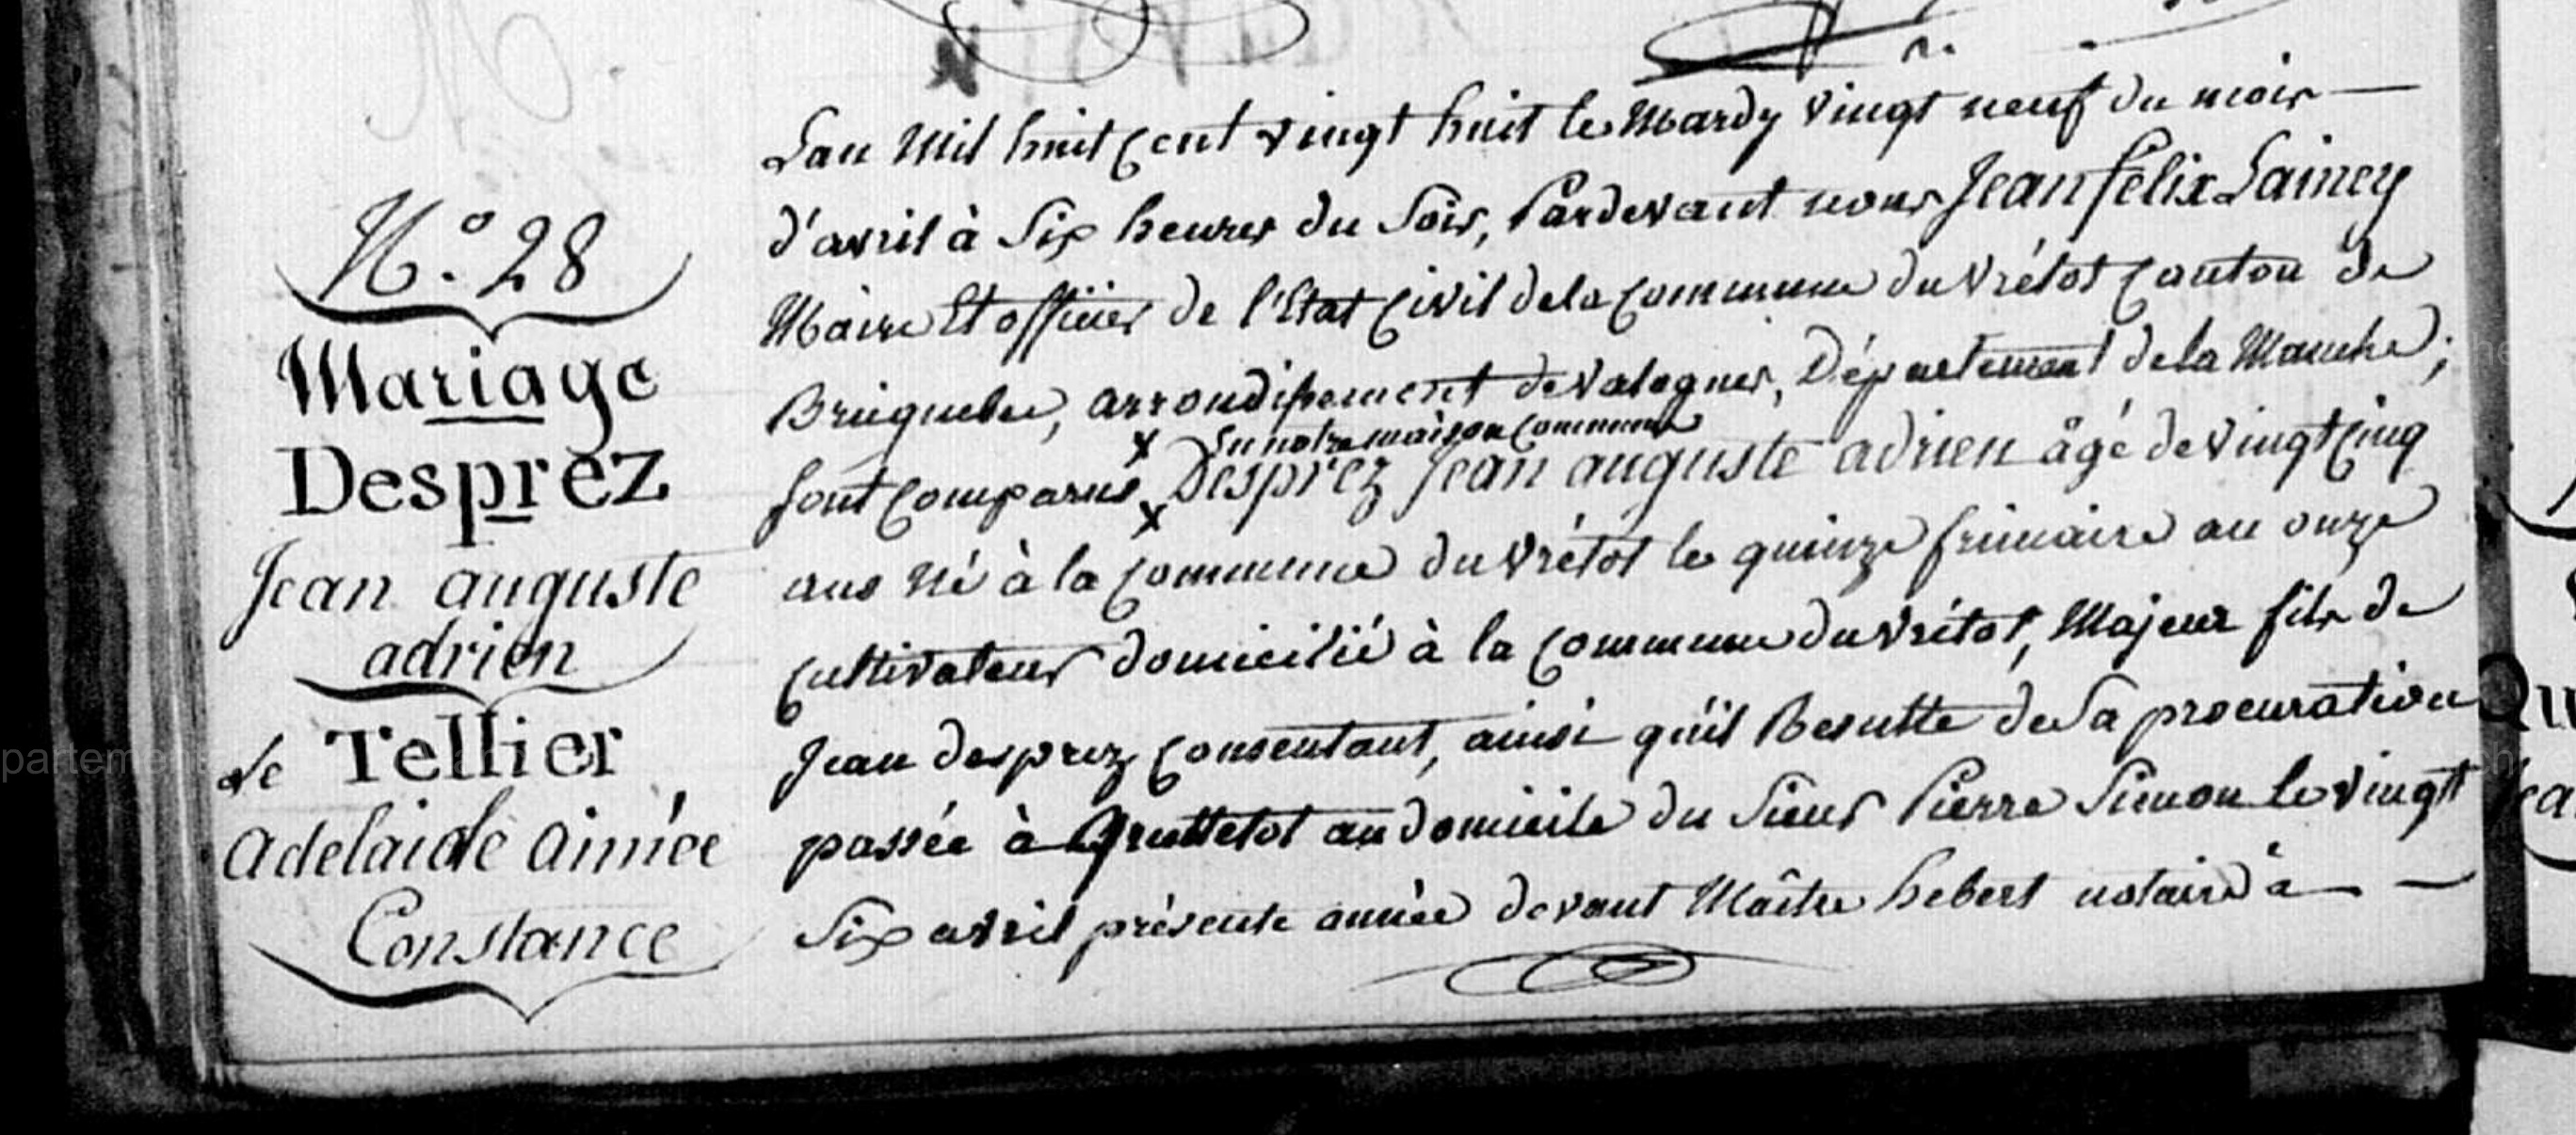 N.º 28
Mariage
Desprèz
Jean auguste
adrien
Le Tellier
adelaide aimée
Constance
Lan Mil huit Cent vingt huit le Mardy vingt neuf du mois —
d'avril à Six heures du Soir, Pardevant nous Jean félix Lainey
Maire Et officier de l'Etat Civil de la Commune du Vrétot Canton de
Briquebec, arrondissement de Valognes, Département de la Manche;
x En notre maison Commune
Sont Comparus x Desprèz Jean auguste adrien âgé de vingt Cinq
ans Né à la Commune du Vrétot le quinze frimaire an onze
Cultivateur domicilié à la Commune du Vrétot, Majeur fils de
Jean desprez Consentant, ainsi qu'il Resulte de Sa procuration
passée à Gruttetot au domicile du Sieur Pierre Simon le vingt
Six avril présente année devant Maître hebert notaire à — —